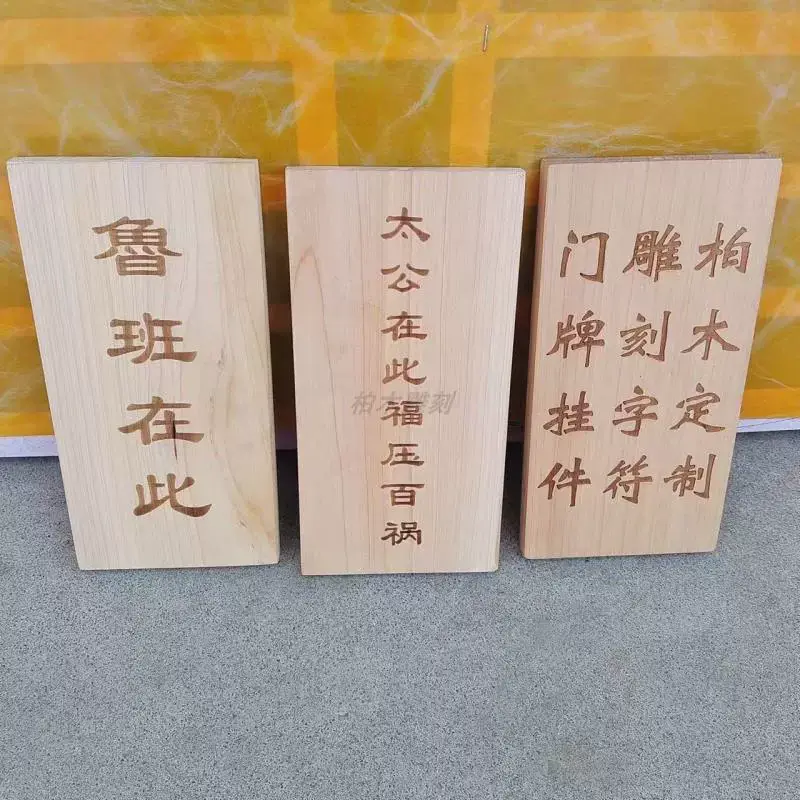 魯班在此
太公在此福压百祸
柏木定制
雕刻字符
门牌挂件
柏木雕刻